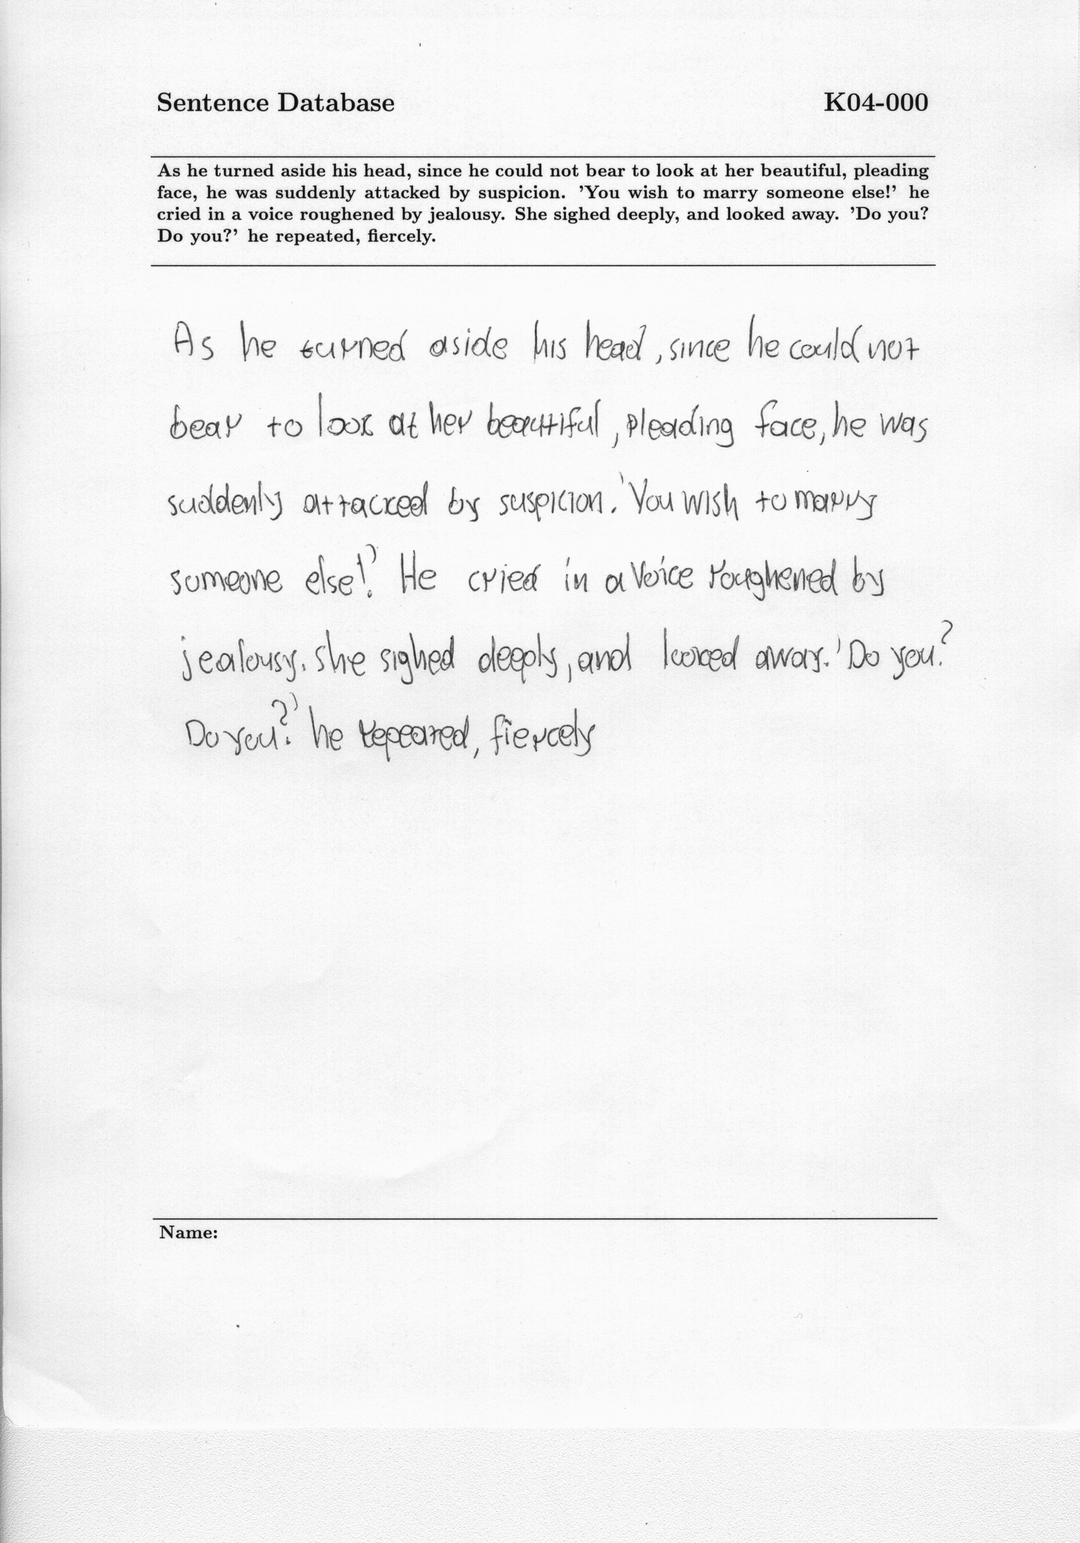 Sentence Database K04-000
As he turned aside his head, since he could not bear to look at her beautiful, pleading
face, he was suddenly attacked by suspicion. 'You wish to marry someone else!' he
cried in a voice roughened by jealousy. She sighed deeply, and looked away. 'Do you?
Do you?' he repeated, fiercely.
As he turned aside his head, since he could not
bear to look at her beautiful, pleading face, he was
suddenly attacked by suspicion. 'You wish to marry
someone else!' He cried in a voice roughened by
jealousy. she sighed deeply, and looked away. 'Do you?
Do you?' he repeated, fiercely
Name: